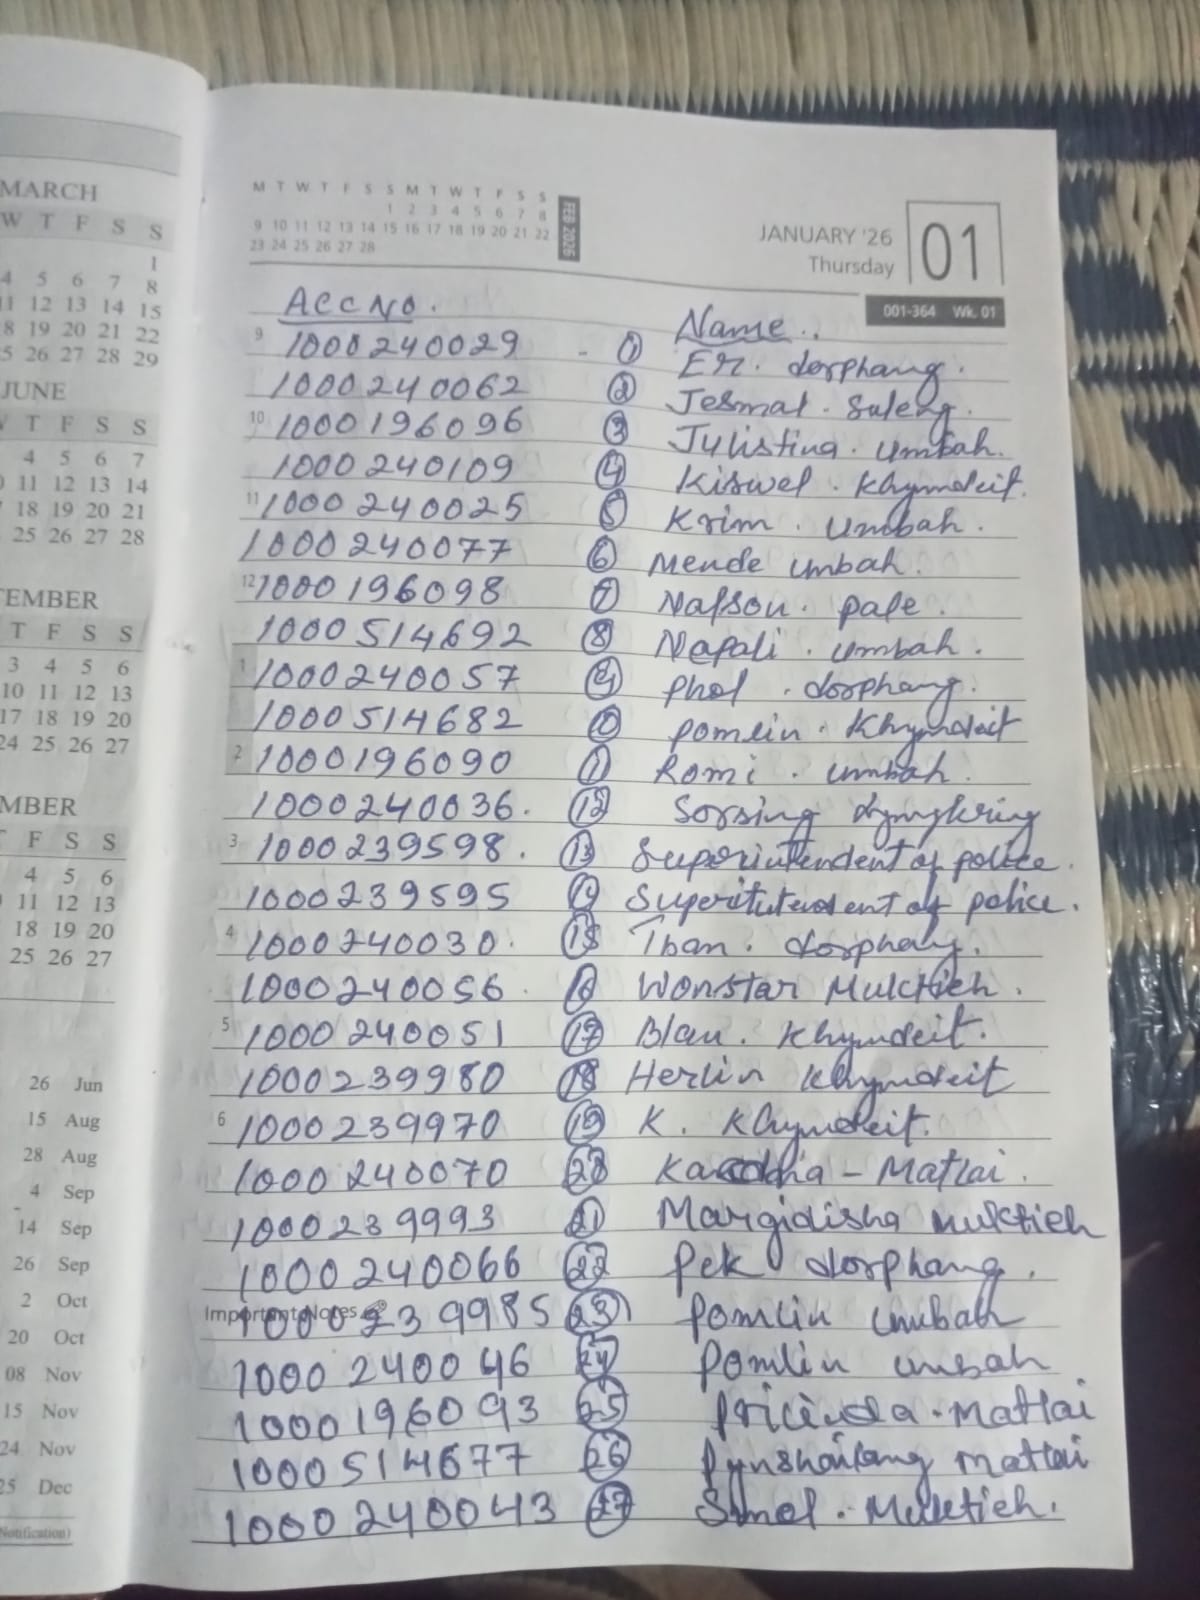 MARCH
W T F S S
1
4 5 6 7 8
11 12 13 14 15
18 19 20 21 22
25 26 27 28 29
JUNE
T F S S
4 5 6 7
11 12 13 14
18 19 20 21
25 26 27 28
TEMBER
T F S S
3 4 5 6
10 11 12 13
17 18 19 20
24 25 26 27
MBER
F S S
4 5 6
11 12 13
18 19 20
25 26 27
26 Jun
15 Aug
28 Aug
4 Sep
14 Sep
26 Sep
2 Oct
20 Oct
08 Nov
15 Nov
24 Nov
25 Dec
Notification)
M T W T F S S M T W T F S S
1 2 3 4 5 6 7 8
9 10 11 12 13 14 15 16 17 18 19 20 21 22
23 24 25 26 27 28
FEB 2026
JANUARY '26
Thursday
01
001-364 Wk. 01
Acc No. Name.
9 1000240029 - 1 Er. dorphang.
1000240062 2 Jesmal. Suleng.
10 1000196096 3 Jylistina. umbah.
1000240109 4 Kiswel. Khymdeit.
11 1000240025 5 Krim. umbah.
1000240077 6 Mende umbah.
12 1000196098 7 Nafson. pale.
1000514692 8 Napali. umbah.
1 1000240057 9 phol. dorphang.
1000514682 10 pomlin. Khymdeit
2 1000196090 11 Romi. umbah.
1000240036. 12 Sorsing dymgkring
3 1000239598. 13 Superintendent of police.
1000239595 14 Superitutendent of police.
4 1000240030. 15 Tban. dorphang.
1000240056. 16 Wonstar Muktieh.
5 1000240051 17 Blan. Khymdeit.
1000239980 18 Herlin Khymdeit
6 1000239970 19 K. Khymdeit.
1000240070 20 - Matlai.
1000239993 21 Margidisha muktieh
1000240066 22 Pek dorphang.
Important Notes
1000239985 23 Pomlin umbah
1000240046 24 Pomlin umbah
1000196093 25 Pricinda. Matlai
1000514677 26 Pynshailang matlai
1000240043 27 Simol. Muktieh.